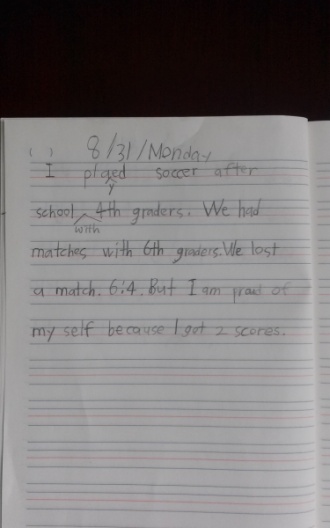 ( ) 8/31/Monday
I played soccer after
school with 4th graders. We had
matches with 6th graders. We lost
a match. 6:4. But I am proud of
my self because I got 2 scores.